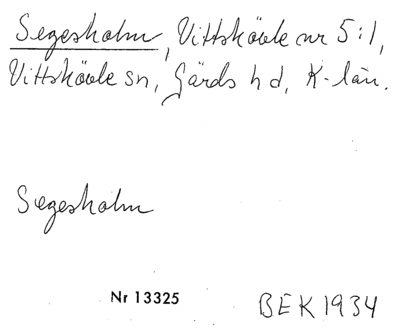 Segesholm, Vittskövle nr 5:1,
Vittskövle sn, Gärds hd, K-län.
Segesholm
Nr 13325
BEK 1934